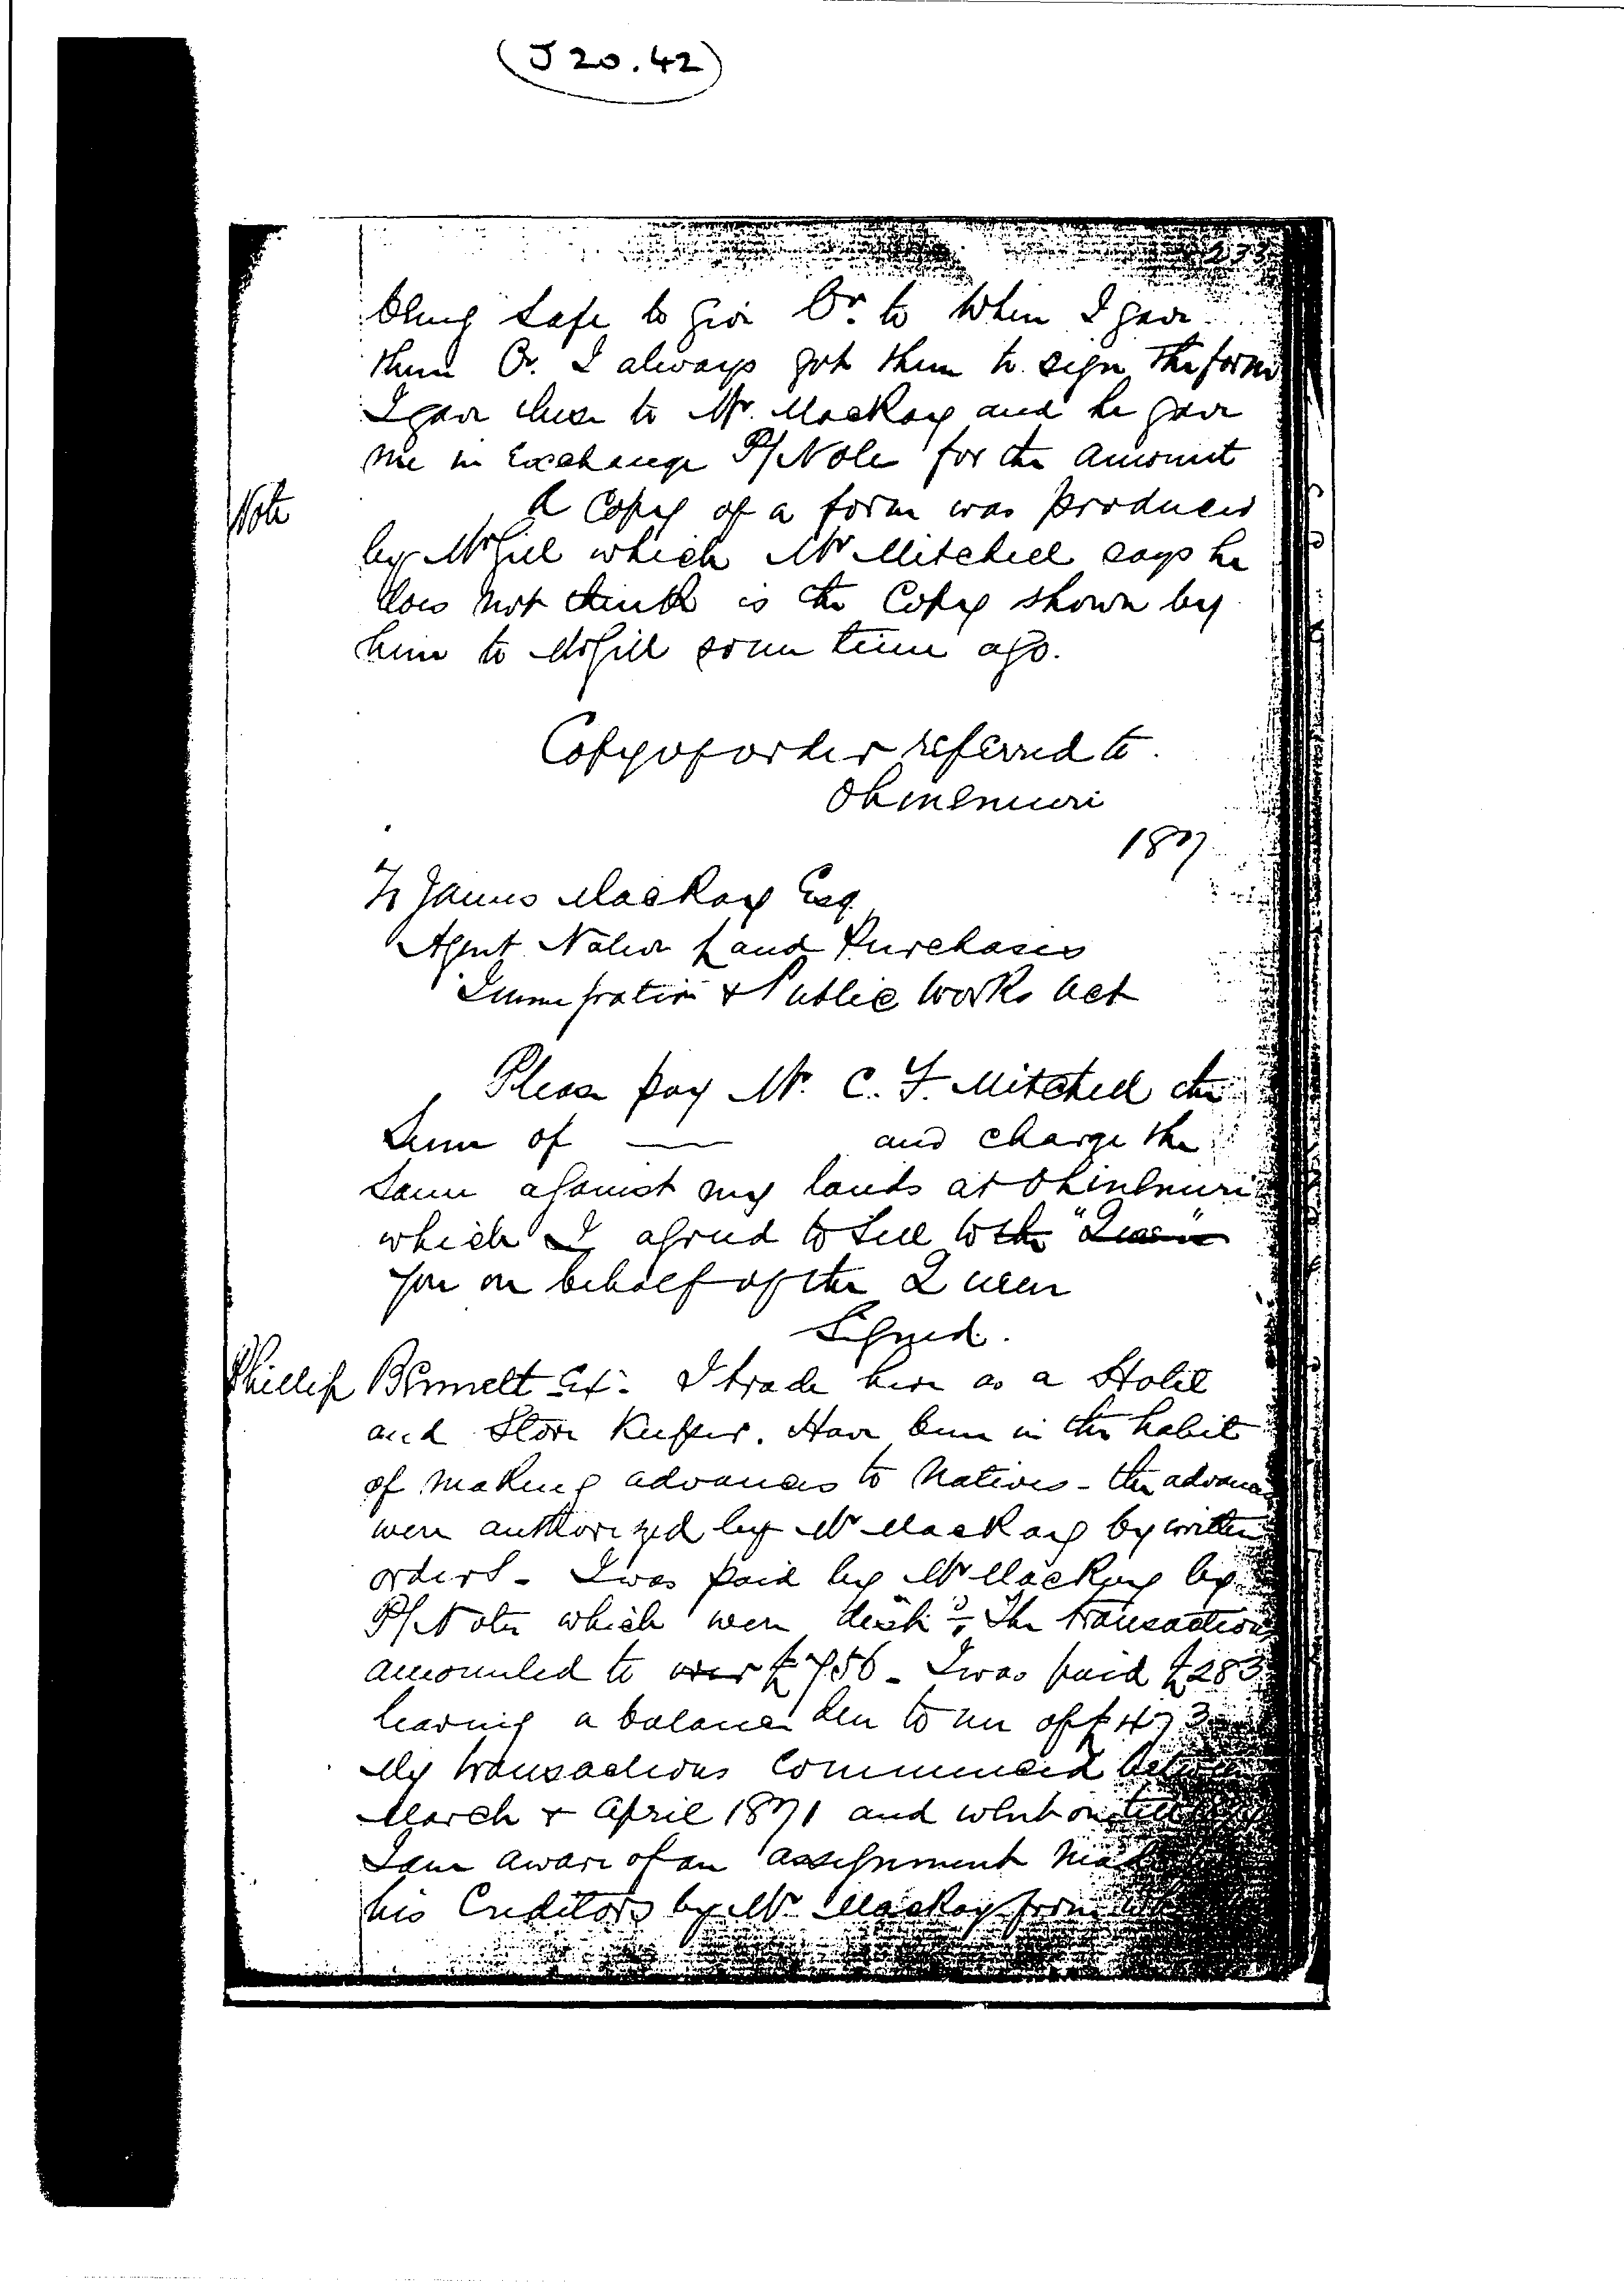 (J 20.42)
233
being safe to give Cr. to When I gave
them Cr. I always got them to sign the form
I gave these to Mr. Mackay and he gave
me in Exchange P/Note for the amount
Note A Copy of a form was produced
by McGill which Mr Mitchell says he
does not think is the Copy shown by
him to McGill some time ago.
Copy of order referred to.
Ohinemuri
187
To James Mackay Esq
Agent Native Land Purchases
Immigration & Public Works Act
Please pay Mr. C. F. Mitchell the
Sum of — and charge the
same against my lands at Ohinemuri
which I agreed to sell to the "Queen"
you on behalf of the Queen
Signed.
Phillip Bennett Ex: I trade here as a Hotel
and Store Keeper. Have been in the habit
of making advances to Natives - the advances
were authorized by Mr Mackay by written
orders - I was paid by Mr Mackay by
P/Notes which were The transactions
amounted to over £756 - I was paid £283
leaving a balance due to me of £473
My transactions commenced between
March & April 1871 and went on till
I am aware of an assignment
his Creditors by Mr. Mackay from